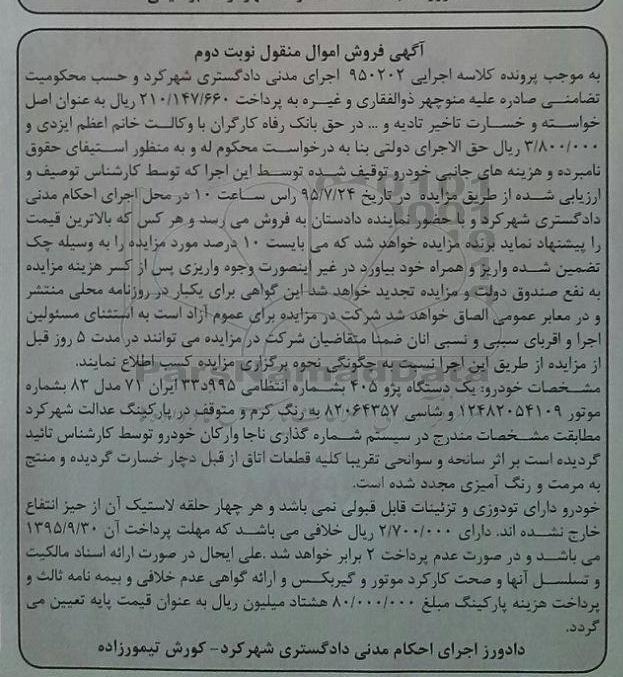 آگهی فروش اموال منقول نوبت دوم
به موجب پرونده کلاسه اجرایی ۹۵۰۲۰۲ اجرای مدنی دادگستری شهرکرد و حسب محکومیت
تضامنی صادره علیه منوچهر ذوالفقاری و غیره به پرداخت ۲۱۰/۱۴۷/۶۶۰ ریال به عنوان اصل
خواسته و خسارت تاخیر تادیه و ... در حق بانک رفاه کارگران با وکالت خانم اعظم ایزدی و
۳/۸۰۰/۰۰۰ ریال حق الاجرای دولتی بنا به درخواست محکوم له و به منظور استیفای حقوق
نامبرده و هزینه های جانبی خودرو توقیف شده توسط این اجرا که توسط کارشناس توصیف و
ارزیابی شده از طریق مزایده در تاریخ ۹۵/۷/۲۴ راس ساعت ۱۰ در محل اجرای احکام مدنی
دادگستری شهرکرد و با حضور نماینده دادستان به فروش می رسد و هر کس که بالاترین قیمت
را پیشنهاد نماید برنده مزایده خواهد شد که می بایست ۱۰ درصد مورد مزایده را به وسیله چک
تضمین شده واریز و همراه خود بیاورد در غیر اینصورت وجوه واریزی پس از کسر هزینه مزایده
به نفع صندوق دولت و مزایده تجدید خواهد شد این گواهی برای یکبار در روزنامه محلی منتشر
و در معابر عمومی الصاق خواهد شد شرکت در مزایده برای عموم آزاد است به استثنای مسئولین
اجرا و اقربای سببی و نسبی انان ضمنا متقاضیان شرکت در مزایده می توانند در مدت ۵ روز قبل
از مزایده از طریق این اجرا نسبت به چگونگی نحوه برگزاری مزایده کسب اطلاع نمایند.
مشخصات خودرو: یک دستگاه پژو ۴۰۵ بشماره انتظامی ۹۹۵د۳۳ ایران ۷۱ مدل ۸۳ بشماره
موتور ۱۲۴۸۲۰۵۴۱۰۹ و شاسی ۸۲۰۶۴۳۵۷ به رنگ کرم و متوقف در پارکینگ عدالت شهرکرد
مطابقت مشخصات مندرج در سیستم شماره گذاری ناجا وارکان خودرو توسط کارشناس تائید
گردیده است بر اثر سانحه و سوانحی تقریبا کلیه قطعات اتاق از قبل دچار خسارت گردیده و منتج
به مرمت و رنگ آمیزی مجدد شده است.
خودرو دارای تودوزی و تزئینات قابل قبولی نمی باشد و هر چهار حلقه لاستیک آن از حیز انتفاع
خارج نشده اند. دارای ۲/۷۰۰/۰۰۰ ریال خلافی می باشد که مهلت پرداخت آن ۱۳۹۵/۹/۳۰
می باشد و در صورت عدم پرداخت ۲ برابر خواهد شد .علی ایحال در صورت ارائه اسناد مالکیت
و تسلسل آنها و صحت کارکرد موتور و گیربکس و ارائه گواهی عدم خلافی و بیمه نامه ثالث و
پرداخت هزینه پارکینگ مبلغ ۸۰/۰۰۰/۰۰۰ هشتاد میلیون ریال به عنوان قیمت پایه تعیین می
گردد.
دادورز اجرای احکام مدنی دادگستری شهرکرد- کورش تیمورزاده
ParsNamadData